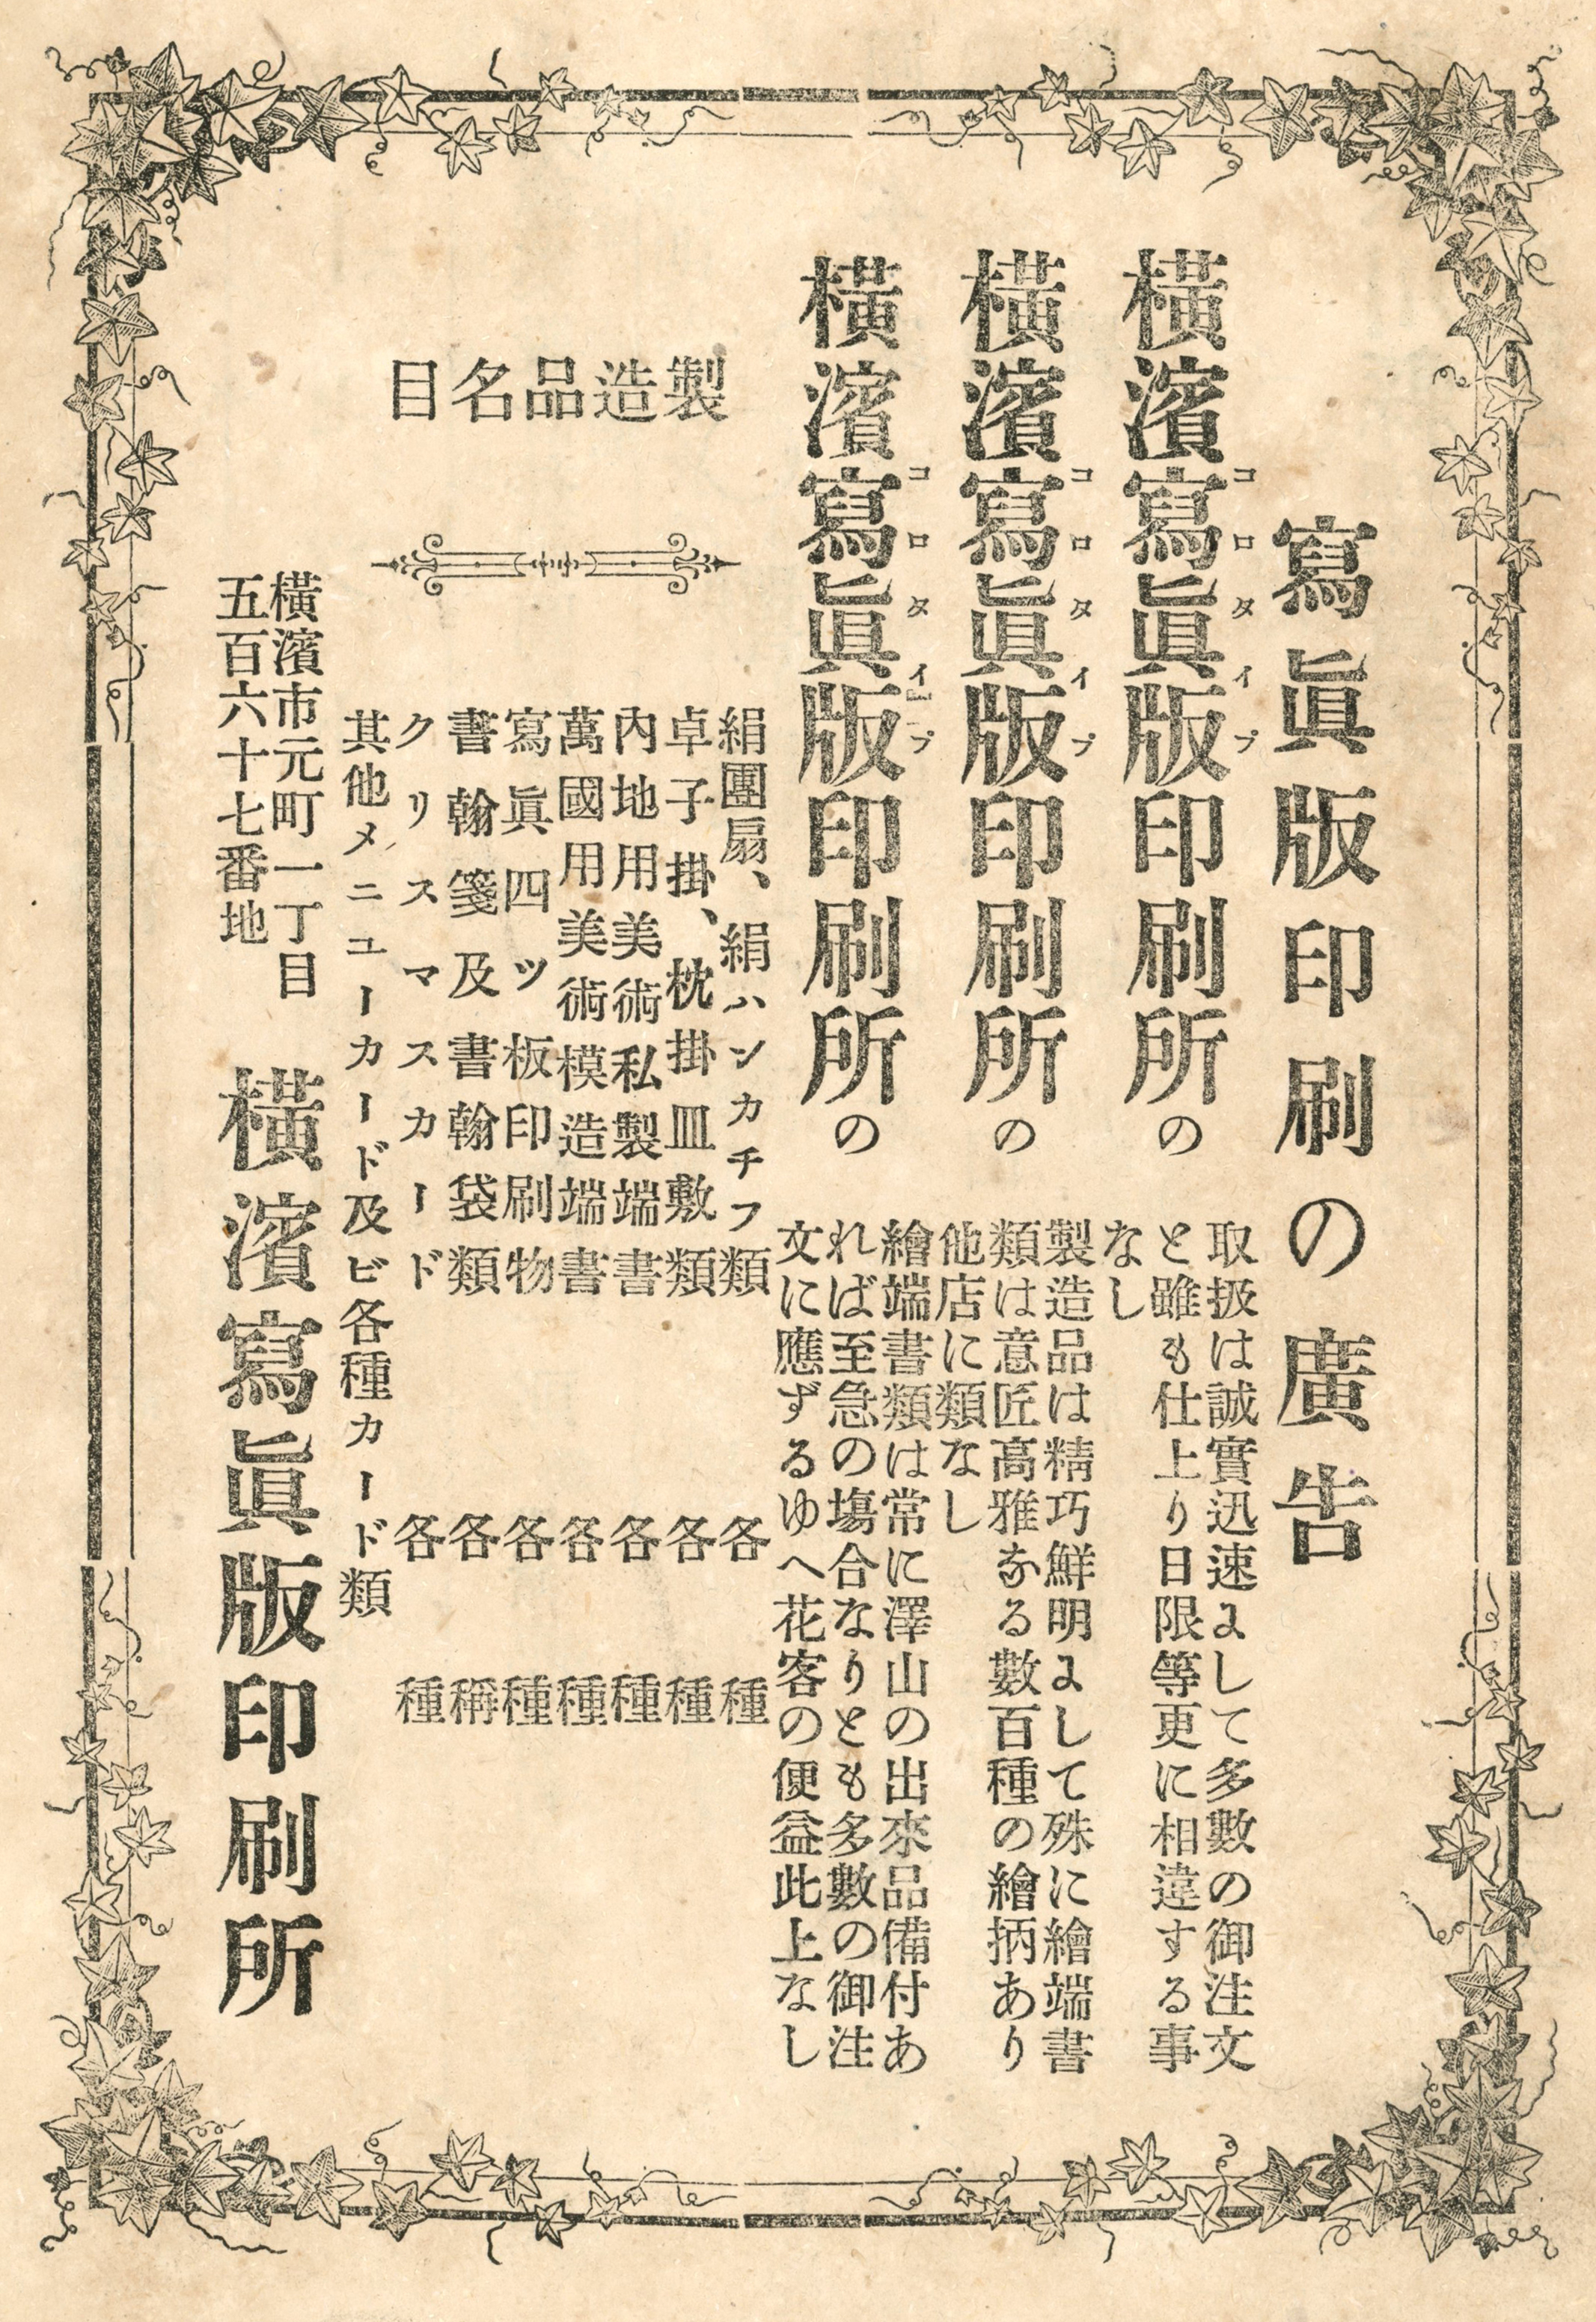 寫眞版印刷の廣告
橫濱寫眞版印刷所の
コロタイプ
取扱は誠實迅速にして多數の御注文
と雖も仕上り日限等更に相違する事
なし
橫濱寫眞版印刷所の
コロタイプ
製造品は精巧鮮明にして殊に繪端書
類は意匠高雅なる數百種の繪柄あり
他店に類なし
橫濱寫眞版印刷所の
コロタイプ
繪端書類は常に澤山の出來品備付あ
れば至急の塲合なりとも多數の御注
文に應ずるゆへ花客の便益此上なし
製造品名目
絹團扇、絹ハンカチフ類 各種
卓子掛、枕掛皿敷類 各種
內地用美術私製端書 各種
萬國用美術模造端書 各種
寫眞四ツ板印刷物 各種
書翰箋及書翰袋類 各稱
クリスマスカード 各種
其他メニユーカード及ビ各種カード類
橫濱市元町一丁目
五百六十七番地
橫濱寫眞版印刷所